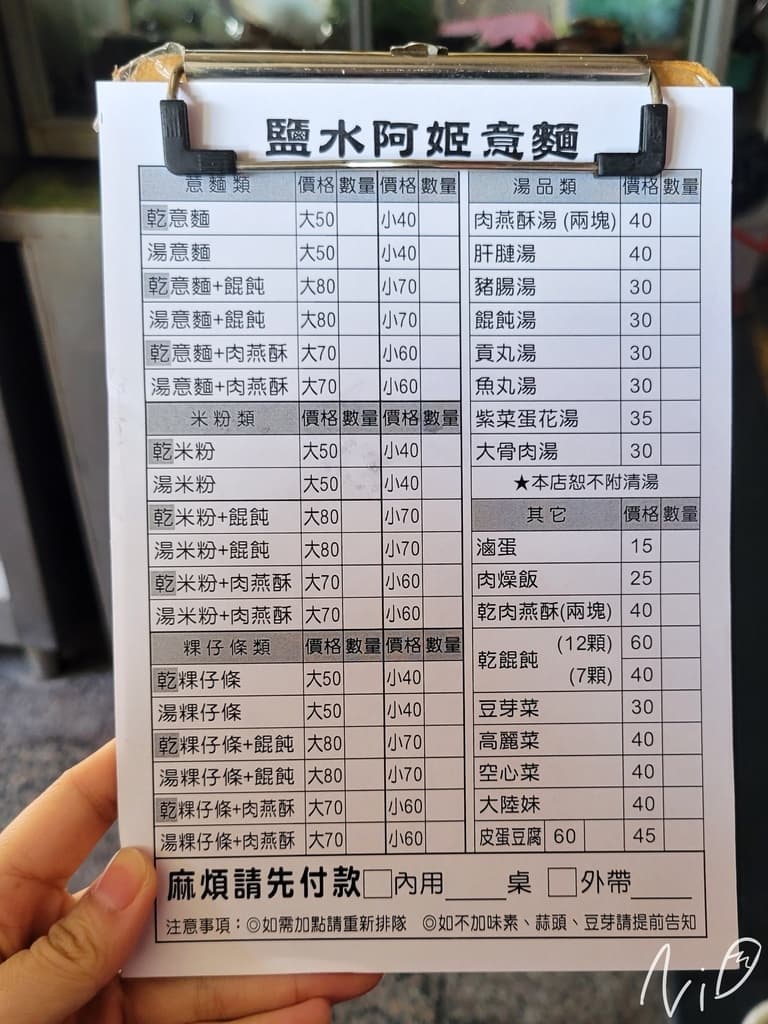 鹽水阿姬意麵
意麵類 價格 數量 價格 數量
乾意麵 大50 小40
湯意麵 大50 小40
乾意麵+餛飩 大80 小70
湯意麵+餛飩 大80 小70
乾意麵+肉燕酥 大70 小60
湯意麵+肉燕酥 大70 小60
米粉類 價格 數量 價格 數量
乾米粉 大50 小40
湯米粉 大50 小40
乾米粉+餛飩 大80 小70
湯米粉+餛飩 大80 小70
乾米粉+肉燕酥 大70 小60
湯米粉+肉燕酥 大70 小60
粿仔條類 價格 數量 價格 數量
乾粿仔條 大50 小40
湯粿仔條 大50 小40
乾粿仔條+餛飩 大80 小70
湯粿仔條+餛飩 大80 小70
乾粿仔條+肉燕酥 大70 小60
湯粿仔條+肉燕酥 大70 小60
湯品類 價格 數量
肉燕酥湯 (兩塊) 40
肝腱湯 40
豬腸湯 30
餛飩湯 30
貢丸湯 30
魚丸湯 30
紫菜蛋花湯 35
大骨肉湯 30
★本店恕不附清湯
其它 價格 數量
滷蛋 15
肉燥飯 25
乾肉燕酥(兩塊) 40
乾餛飩 (12顆) 60
(7顆) 40
豆芽菜 30
高麗菜 40
空心菜 40
大陸妹 40
皮蛋豆腐 60 45
麻煩請先付款□內用____桌 □外帶____
注意事項：◎如需加點請重新排隊 ◎如不加味素、蒜頭、豆芽請提前告知